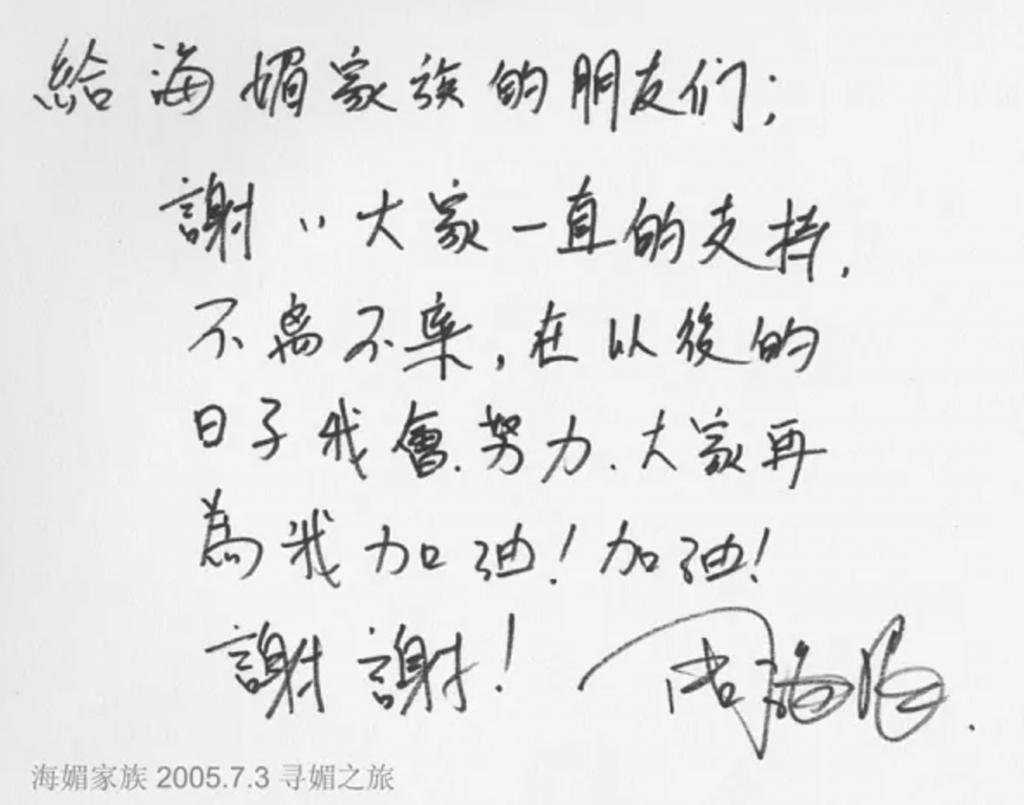 給海媚家族的朋友们；
謝〃大家一直的支持，
不离不棄，在以後的
日子我會.努力.大家再
為我加油！加油！
謝謝！ 周海媚.
海媚家族 2005.7.3 寻媚之旅